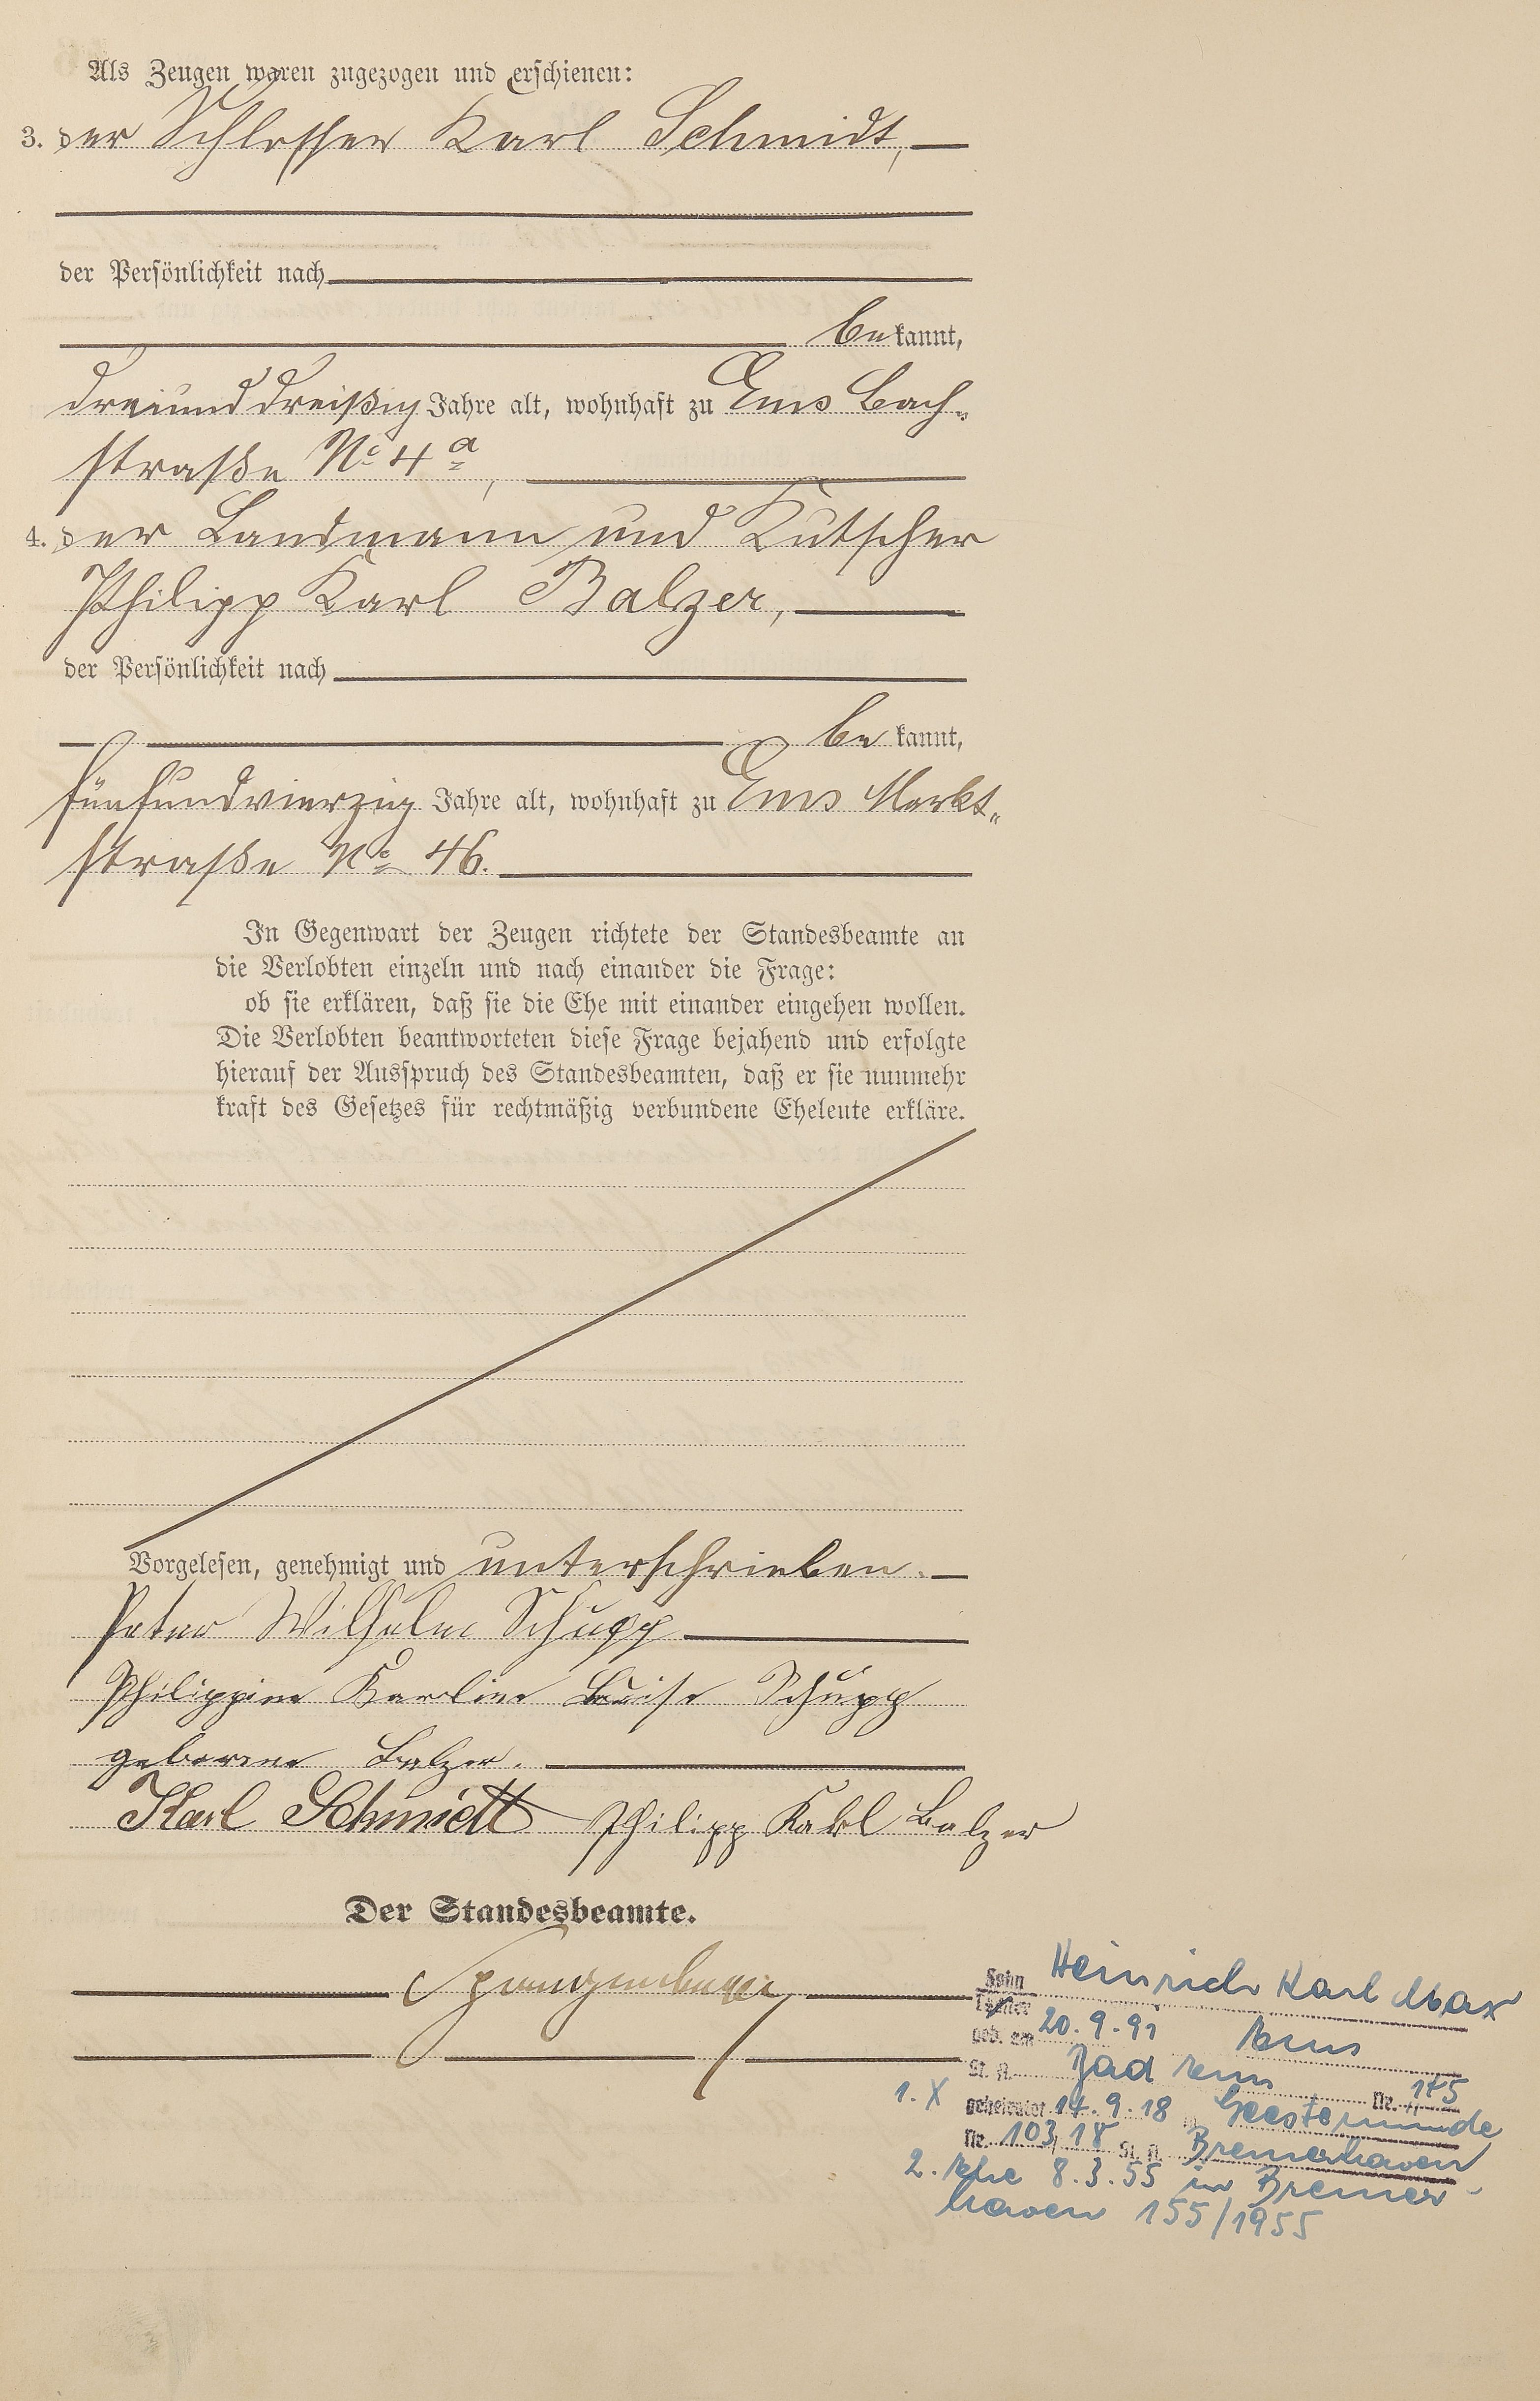 Als Zeugen waren zugezogen und erschienen:
3. der Schlosser Karl Schmidt,
der Persönlichkeit nach
bekannt,
dreiunddreißig Jahre alt, wohnhaft zu Ems Bach-
straße No 4a,
4. der Landmann und Kutscher
Philipp Karl Balzer,
der Persönlichkeit nach
bekannt,
fünfundvierzig Jahre alt, wohnhaft zu Ems Markt-
straße No 46.
In Gegenwart der Zeugen richtete der Standesbeamte an
die Verlobten einzeln und nach einander die Frage:
ob sie erklären, daß sie die Ehe mit einander eingehen wollen.
Die Verlobten beantworteten diese Frage bejahend und erfolgte
hierauf der Ausspruch des Standesbeamten, daß er sie nunmehr
kraft des Gesetzes für rechtmäßig verbundene Eheleute erkläre.
Vorgelesen, genehmigt und unterschrieben.
Peter Wilhelm Schupp
Philippine Karline Luise Schupp
geborene Balzer.
Karl Schmidt Philipp Karl Balzer
Der Standesbeamte.
Spangenberg
Sohn Heinrich Karl Max
Tochter
geb. am 20.9.91 Ems
St. A. Bad Ems Nr. 145
1. X geheiratet 14.9.18 in Geestemünde
Nr. 103/18 St. A. Bremerhaven
2. Ehe 8.3.55 in Bremer-
haven 155/1955